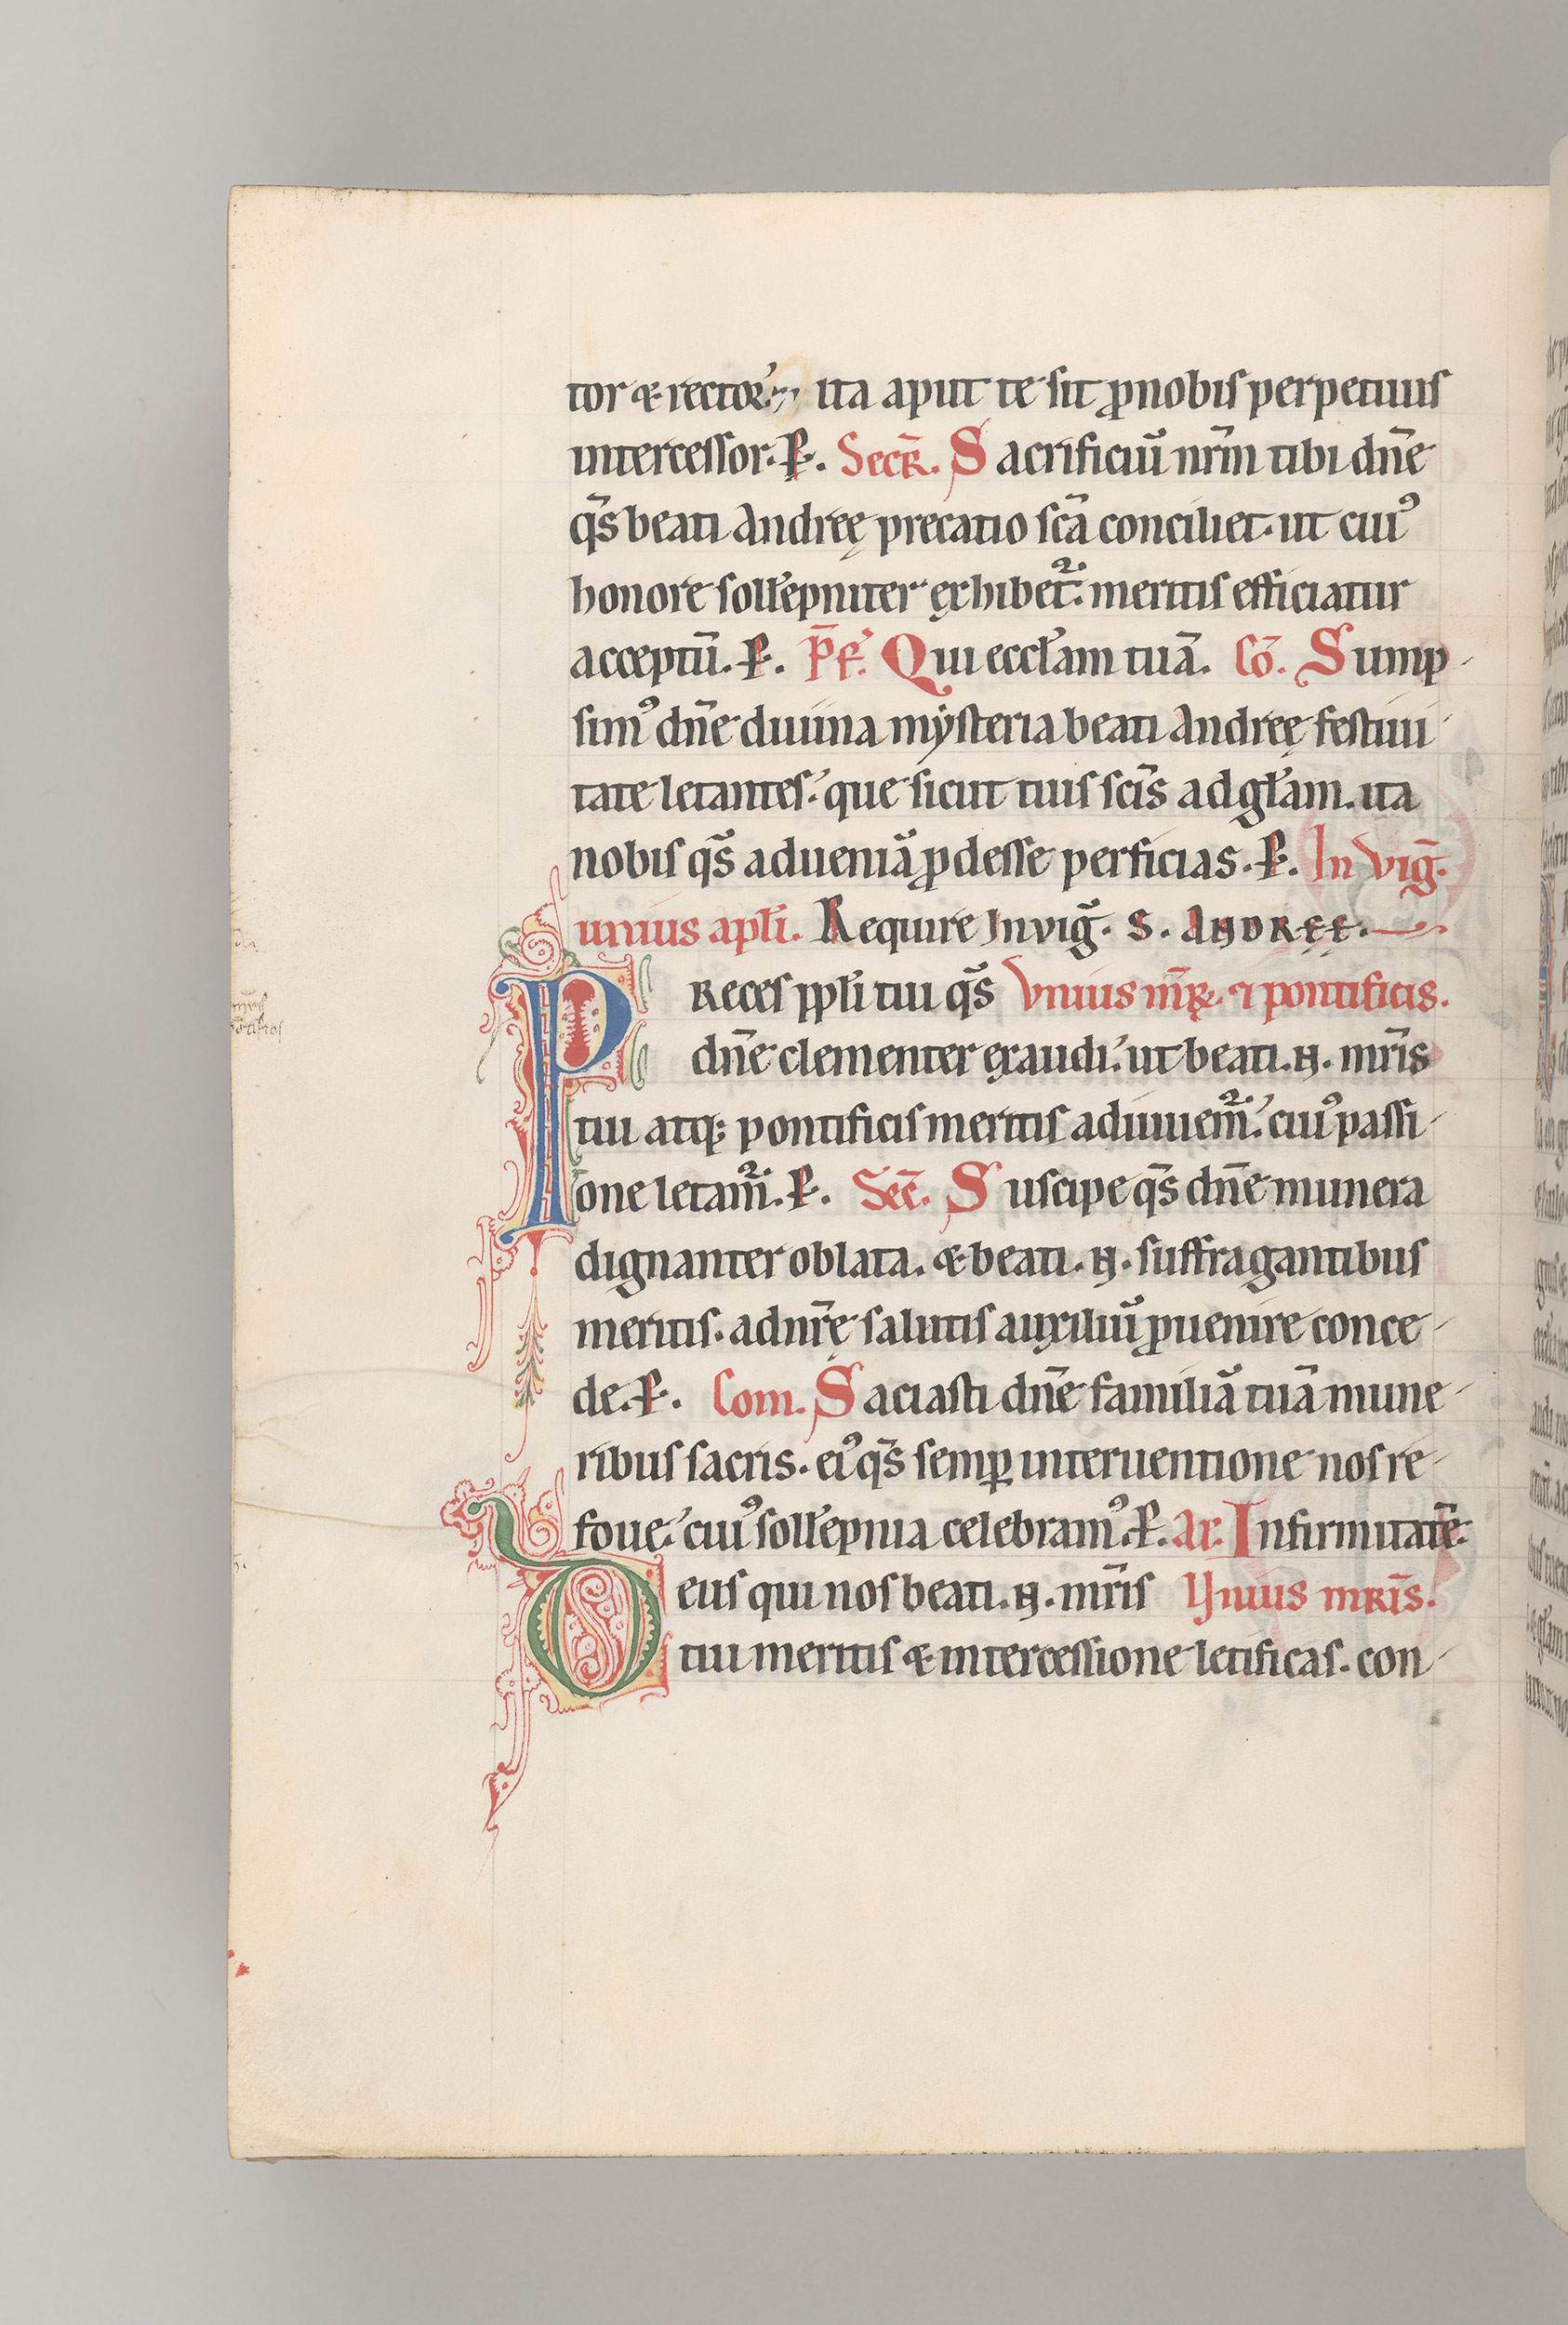 tor & rector. ita aput te sit ꝓ nobis perpetuus
intercessor. P. Secr̄. Sacrificiū nr̄m tibi dn̄e
qs̄ beati Andreę precatio scā conciliet. ut cuiꝰ
honore soll'epniter exhibet᷑. meritis efficiatur
acceptū. P. P̄f. Qui eccl'am tuā. Cō. Sump-
simꝰ dn̄e diuina mẏsteria beati Andreę festiui-
tate letantes. que sicut tuis scīs ad gl'am. ita
nobis qs̄ ad ueniā ꝓdesse perficias. P. In viḡ.
unius apl'i. Require In viḡ. S. ANDREE.
PReces ppl'i tui qs̄ Vnius mr̄. ⁊ pontificis.
dn̄e clementer exaudi. ut beati. N. mr̄is
tui atq; pontificis meritis adiuuem᷑. cuiꝰ passi-
one letam᷑. P. Sec̄. Suscipe qs̄ dn̄e munera
dignanter oblata. & beati. N. suffragantibus
meritis. ad nr̄ę salutis auxiliū ꝓuenire conce-
de. P. Com. Saciasti dn̄e familiā tuā mune-
ribus sacris. eiꝰ qs̄ semꝑ interuentione nos re-
foue. cuiꝰ soll'epnia celebramꝰ. P. Ar. Infirmitatē.
Deus qui nos beati. N. mr̄is Vnius mr̄is.
tui meritis & intercessione letificas. con-